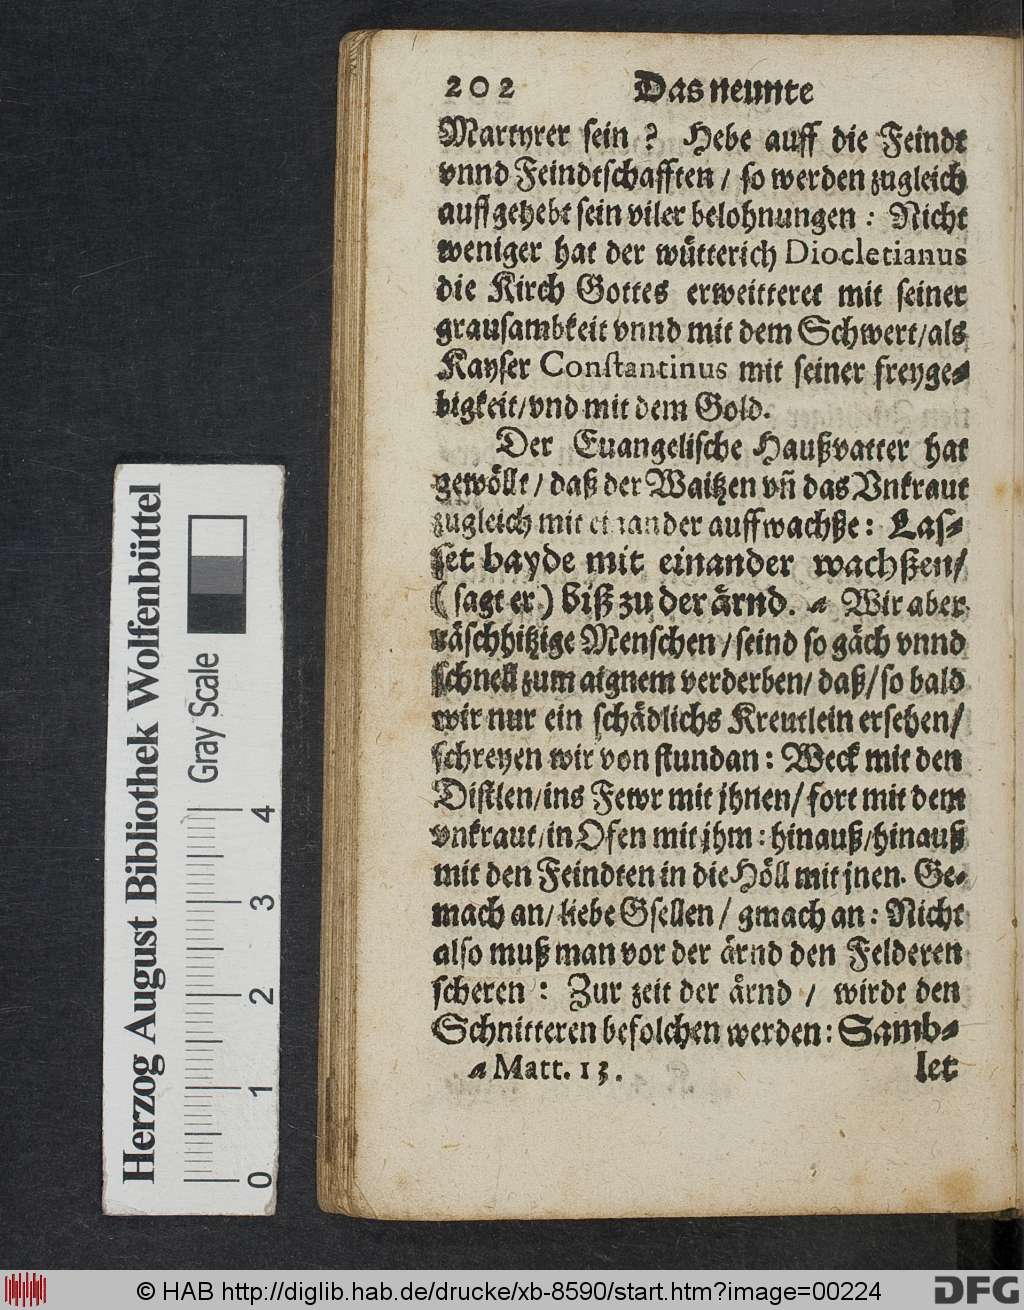 202 Das neunte
Martyrer sein ? Hebe auff die Feindt
vnnd Feindtschafften / so werden zugleich
auffgehebt sein viler belohnungen : Nicht
weniger hat der wütterich Diocletianus
die Kirch Gottes erweitteret mit seiner
grausambkeit vnnd mit dem Schwert/als
Kayser Constantinus mit seiner freyge-
bigkeit/vnd mit dem Gold.
Der Euangelische Haußvatter hat
gewöllt / daß der Waitzen vñ das Vnkraut
zugleich mit einander auffwachße : Las-
set bayde mit einander wachßen/
( sagt er ) biß zu der ärnd. a Wir aber
räschhitzige Menschen / seind so gäch vnnd
schnell zum aignem verderben/ daß/ so bald
wir nur ein schädlichs Kreutlein ersehen/
schreyen wir von stundan : Weck mit den
Distlen/ins Fewr mit jhnen/ fort mit dem
vnkraut/in Ofen mit jhm : hinauß/hinauß
mit den Feindten in die Höll mit jnen. Ge-
mach an/ liebe Gsellen / gmach an : Nicht
also muß man vor der ärnd den Felderen
scheren : Zur zeit der ärnd / wirdt den
Schnitteren befolchen werden : Samb-
a Matt. 13. let
Herzog August Bibliothek Wolfenbüttel
Gray Scale
0 1 2 3 4
© HAB http://diglib.hab.de/drucke/xb-8590/start.htm?image=00224
DFG